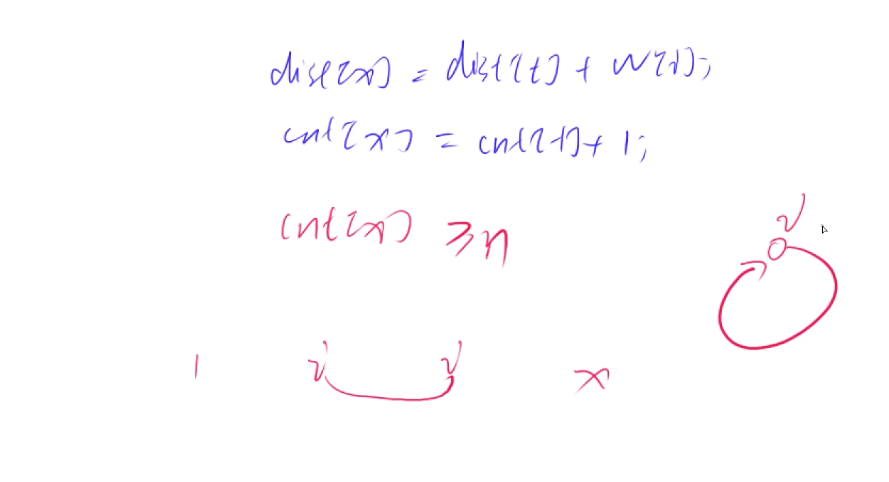 dist[x] = dist[t] + w[i];
cnt[x] = cnt[t] + 1;
cnt[x] ≥ n
i
1 i i x